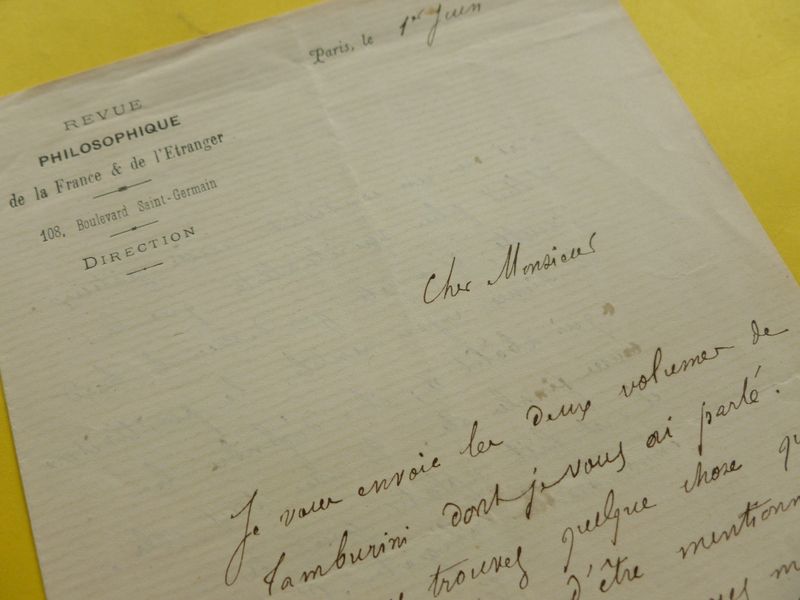 Paris, le 1er Juin
REVUE
PHILOSOPHIQUE
de la France & de l'Etranger
108, Boulevard Saint-Germain
DIRECTION
Cher Monsieur
Je vous envoie les deux volumes de
Tamburini dont je vous ai parlé.
trouvez quelque chose
d'être